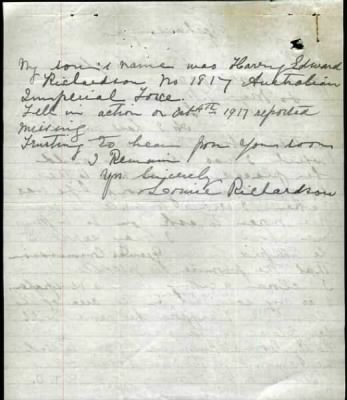 My son's name was Harvey Edward
Richardson No 1817 Australian
Imperial Force.
Fell in action on Oct 4th 1917 reported
missing
Trusting to hear from you soon
I Remain
Yrs. Sincerely
Louise Richardson